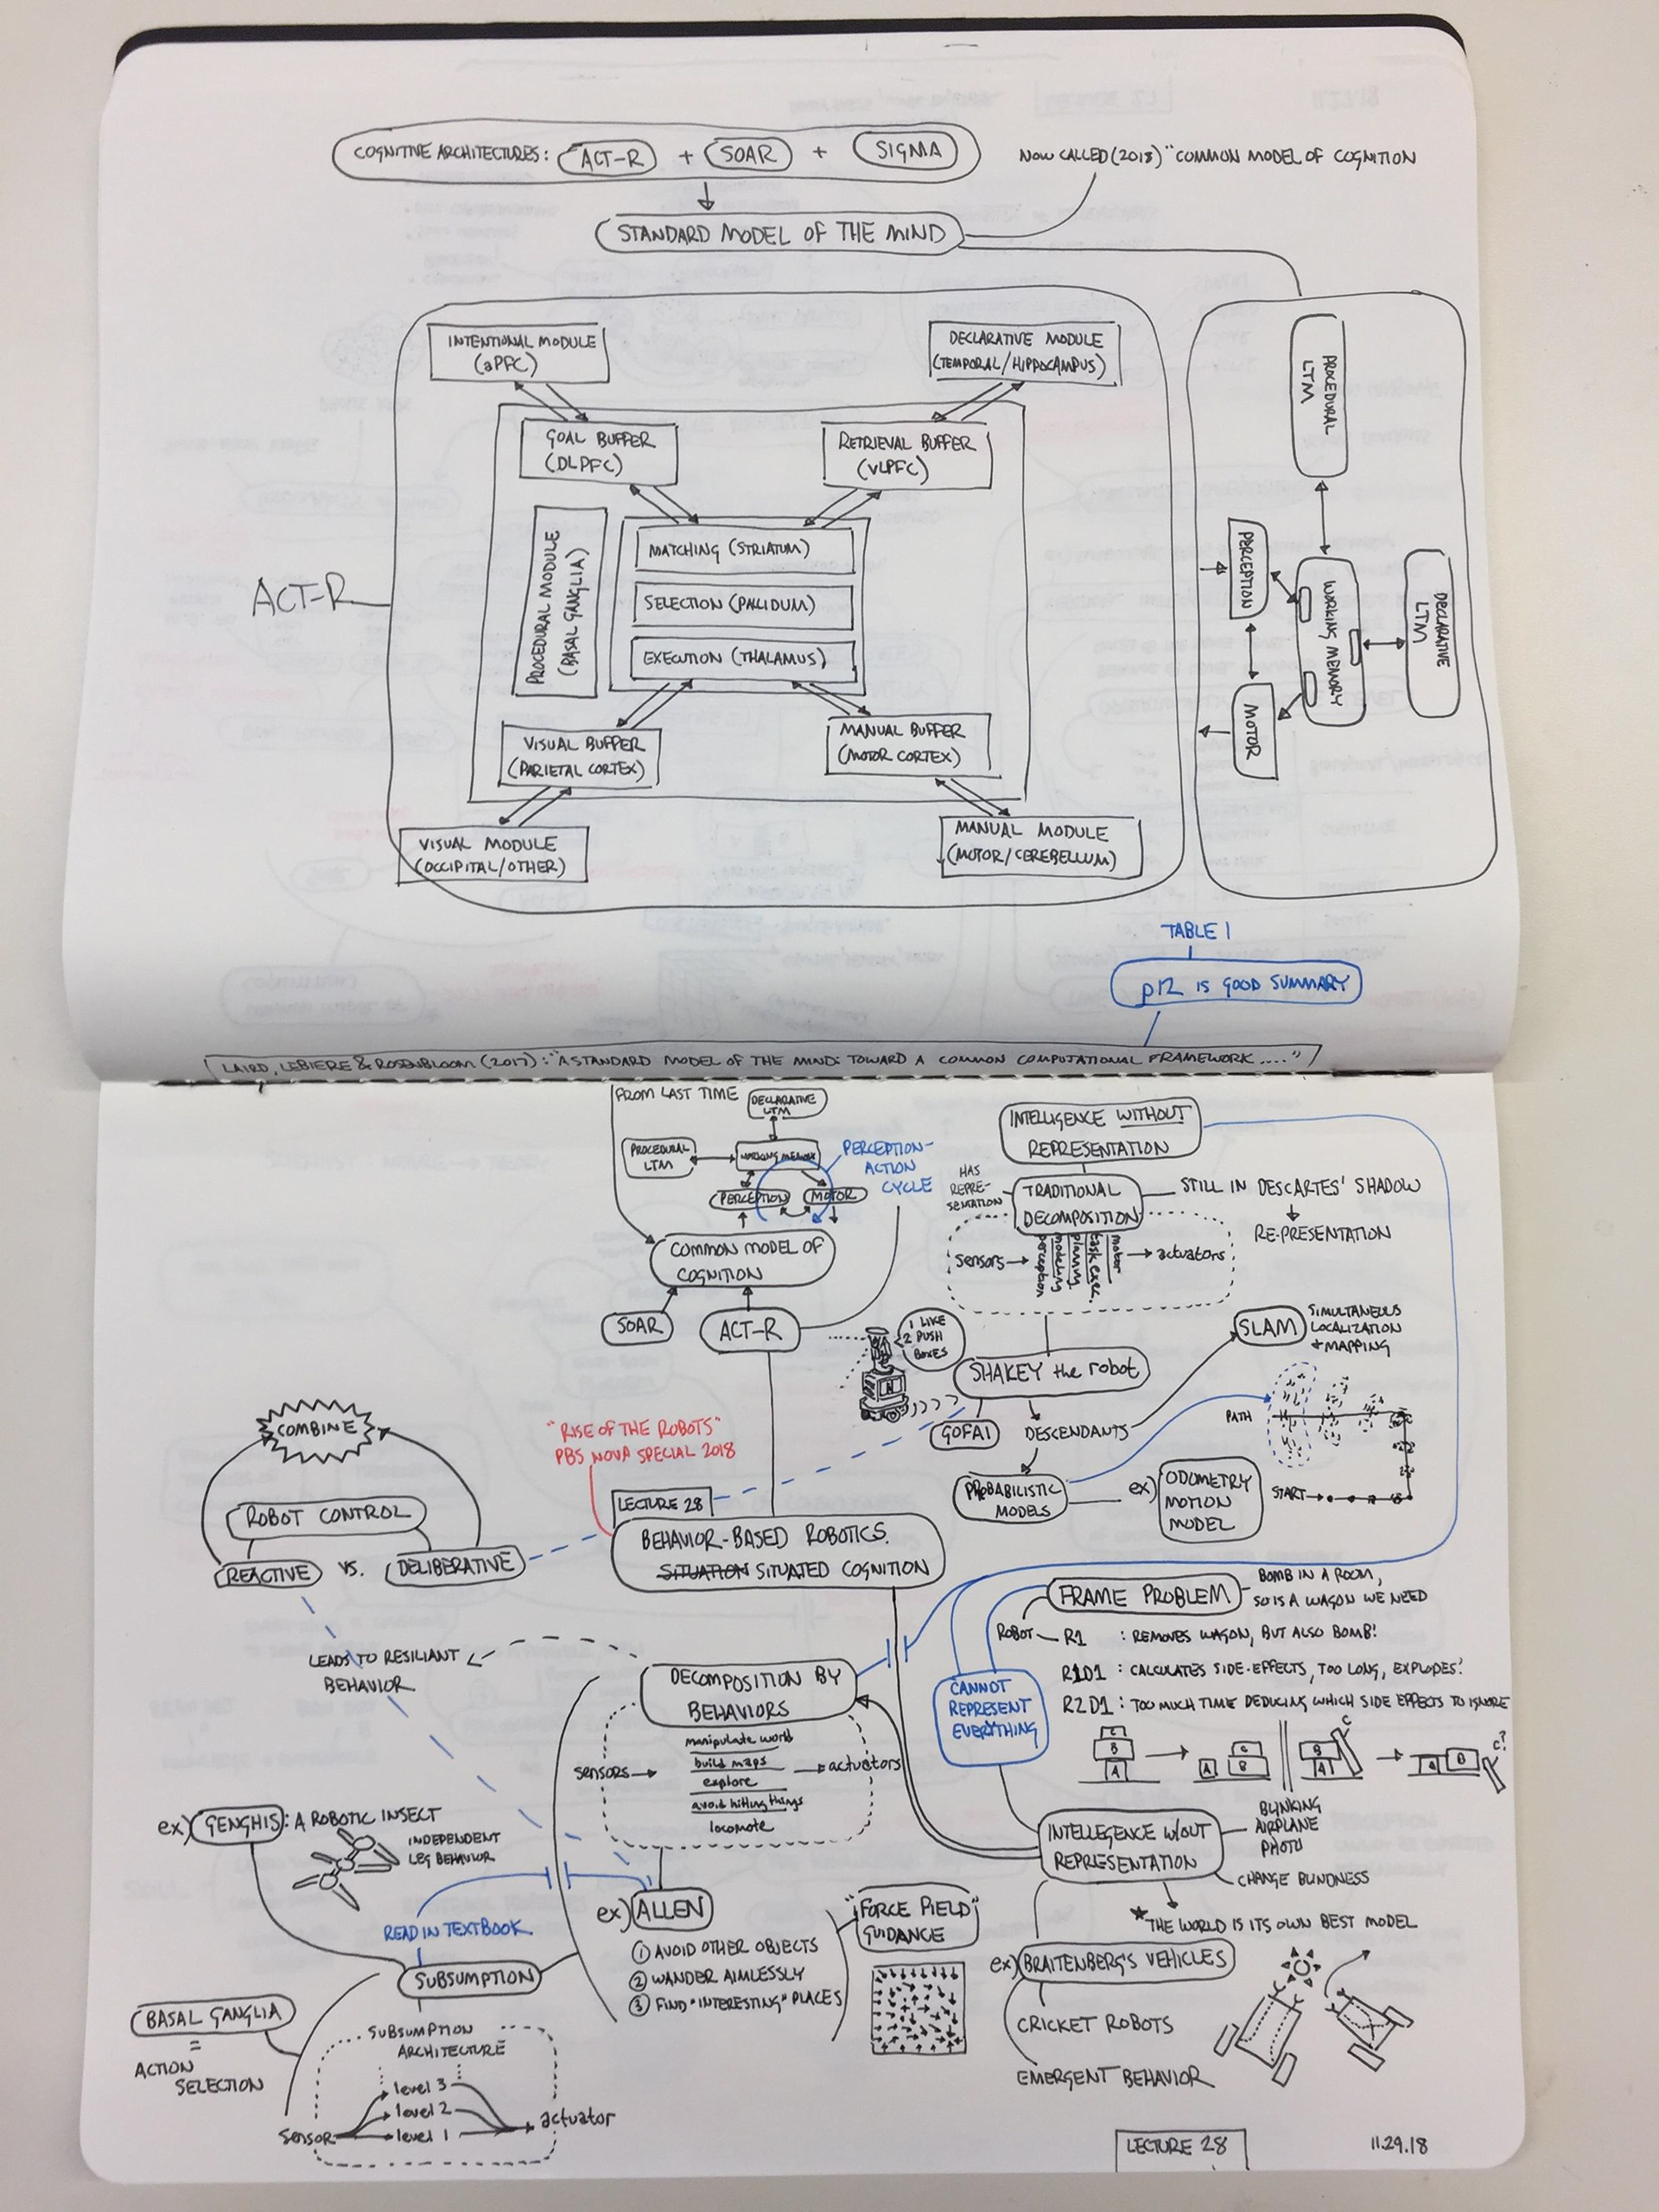 COGNITIVE ARCHITECTURES: ACT-R + SOAR + SIGMA
NOW CALLED (2018) "COMMON MODEL OF COGNITION
STANDARD MODEL OF THE MIND
ACT-R
INTENTIONAL MODULE
(aPFC)
DECLARATIVE MODULE
(TEMPORAL/HIPPOCAMPUS)
GOAL BUFFER
(DLPFC)
RETRIEVAL BUFFER
(VLPFC)
PROCEDURAL MODULE
(BASAL GANGLIA)
MATCHING (STRIATUM)
SELECTION (PALLIDUM)
EXECUTION (THALAMUS)
VISUAL BUFFER
(PARIETAL CORTEX)
MANUAL BUFFER
(MOTOR CORTEX)
VISUAL MODULE
(OCCIPITAL/OTHER)
MANUAL MODULE
(MOTOR/CEREBELLUM)
PROCEDURAL
LTM
PERCEPTION
WORKING MEMORY
DECLARATIVE
LTM
MOTOR
TABLE 1
p12 IS GOOD SUMMARY
LAIRD, LEBIERE & ROSENBLOOM (2017): "A STANDARD MODEL OF THE MIND: TOWARD A COMMON COMPUTATIONAL FRAMEWORK...."
FROM LAST TIME
DECLARATIVE
LTM
PROCEDURAL
LTM
WORKING MEMORY
PERCEPTION
MOTOR
PERCEPTION-
ACTION
CYCLE
COMMON MODEL OF
COGNITION
SOAR
ACT-R
INTELLIGENCE WITHOUT
REPRESENTATION
HAS
REPRE-
SENTATION
TRADITIONAL
DECOMPOSITION
STILL IN DESCARTES' SHADOW
RE-PRESENTATION
sensors
perception
modeling
planning
task exec.
motor
actuators
I LIKE
2 PUSH
BOXES
SHAKEY the robot
GOFAI
DESCENDANTS
SLAM
SIMULTANEOUS
LOCALIZATION
+ MAPPING
PROBABILISTIC
MODELS
ex) ODOMETRY
MOTION
MODEL
PATH
START
COMBINE
ROBOT CONTROL
REACTIVE VS. DELIBERATIVE
"RISE OF THE ROBOTS"
PBS NOVA SPECIAL 2018
LECTURE 28
BEHAVIOR-BASED ROBOTICS.
SITUATION SITUATED COGNITION
LEADS TO RESILIANT
BEHAVIOR
DECOMPOSITION BY
BEHAVIORS
sensors
manipulate world
build maps
explore
avoid hitting things
locomote
actuators
FRAME PROBLEM
BOMB IN A ROOM,
SO IS A WAGON WE NEED
ROBOT
R1 : REMOVES WAGON, BUT ALSO BOMB!
R1D1 : CALCULATES SIDE-EFFECTS, TOO LONG, EXPLODES!
R2D1 : TOO MUCH TIME DEDUCING WHICH SIDE EFFECTS TO IGNORE
CANNOT
REPRESENT
EVERYTHING
C
B
A
A
C
B
B
A
C
A
B
C?
INTELLEGENCE W/OUT
REPRESENTATION
BLINKING
AIRPLANE
PHOTO
CHANGE BLINDNESS
*THE WORLD IS ITS OWN BEST MODEL
ex) BRAITENBERG'S VEHICLES
CRICKET ROBOTS
EMERGENT BEHAVIOR
ex) GENGHIS: A ROBOTIC INSECT
INDEPENDENT
LEG BEHAVIOR
READ IN TEXTBOOK
SUBSUMPTION
ex) ALLEN
① AVOID OTHER OBJECTS
② WANDER AIMLESSLY
③ FIND "INTERESTING" PLACES
"FORCE FIELD"
GUIDANCE
BASAL GANGLIA
=
ACTION
SELECTION
SUBSUMPTION
ARCHITECTURE
level 3
level 2
level 1
sensor
actuator
LECTURE 28
11.29.18